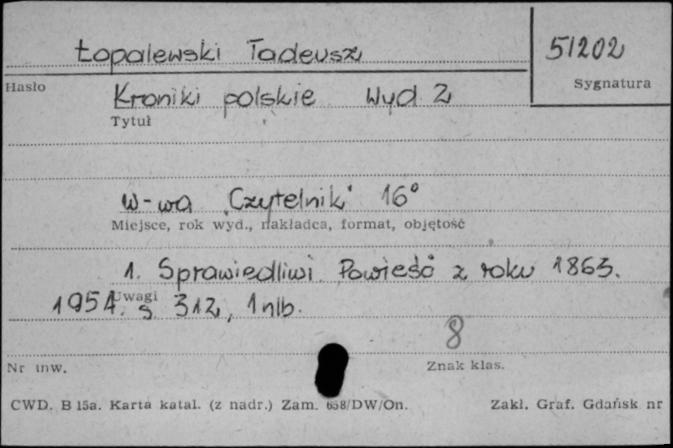 Łopalewski Tadeusz 51202
Hasło Sygnatura
Kroniki polskie Wyd 2
Tytuł
W-wa „Czytelnik" 16°
Miejsce, rok wyd., nakładca, format, objętość
1. Sprawiedliwi. Powieść z roku 1863.
Uwagi
1954. s 312, 1 nlb.
8
Nr inw. Znak klas.
CWD. B 15a. Karta katal. (z nadr.) Zam. 658/DW/On. Zakł. Graf. Gdańsk nr